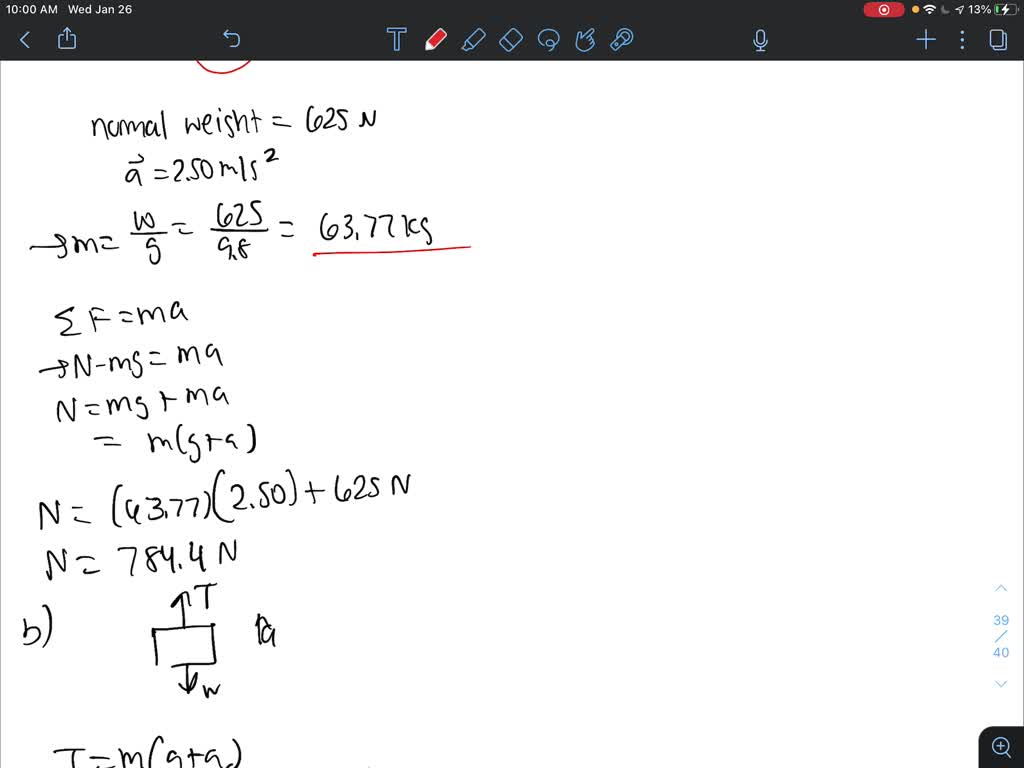 10:00 AM Wed Jan 26
13%
T
normal weight = 625 N
a⃗ = 2.50 m/s²
→ m = w/g = 625/9.8 = 63.77 kg
ΣF = ma
→ N - mg = ma
N = mg + ma
= m(g+a)
N = (63.77)(2.50) + 625 N
N = 784.4 N
b)
T
a
w
39
/
40
T = m(g+a)